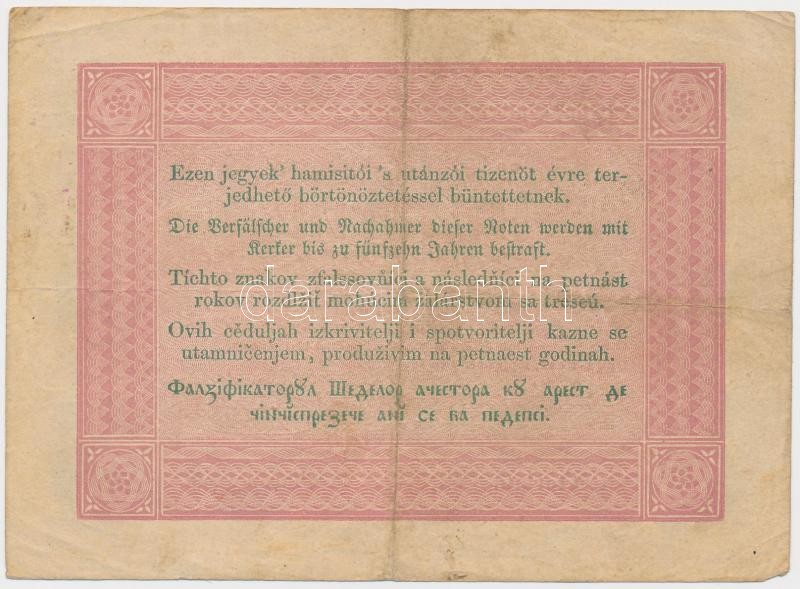 Ezen jegyek' hamisitói 's utánzói tizenöt évre ter-
jedhető börtönöztetéssel büntettetnek.
Die Verfälscher und Nachahmer dieser Noten werden mit
Kerker bis zu fünfzehn Jahren bestraft.
Tíchto znakov zfalssovňíci a následňíci na petnást
rokov rozdlžiť mohúcim žalárstvom sa tresců.
Ovih cěduljah izkrivitelji i spotvoritelji kazne se
utamničenjem, produživim na petnaest godinah.
Фалзіфікаторȣл Шеделор ачестора кȣ арест де
чінчіспрезече ані се ва педепсі.
darabanth